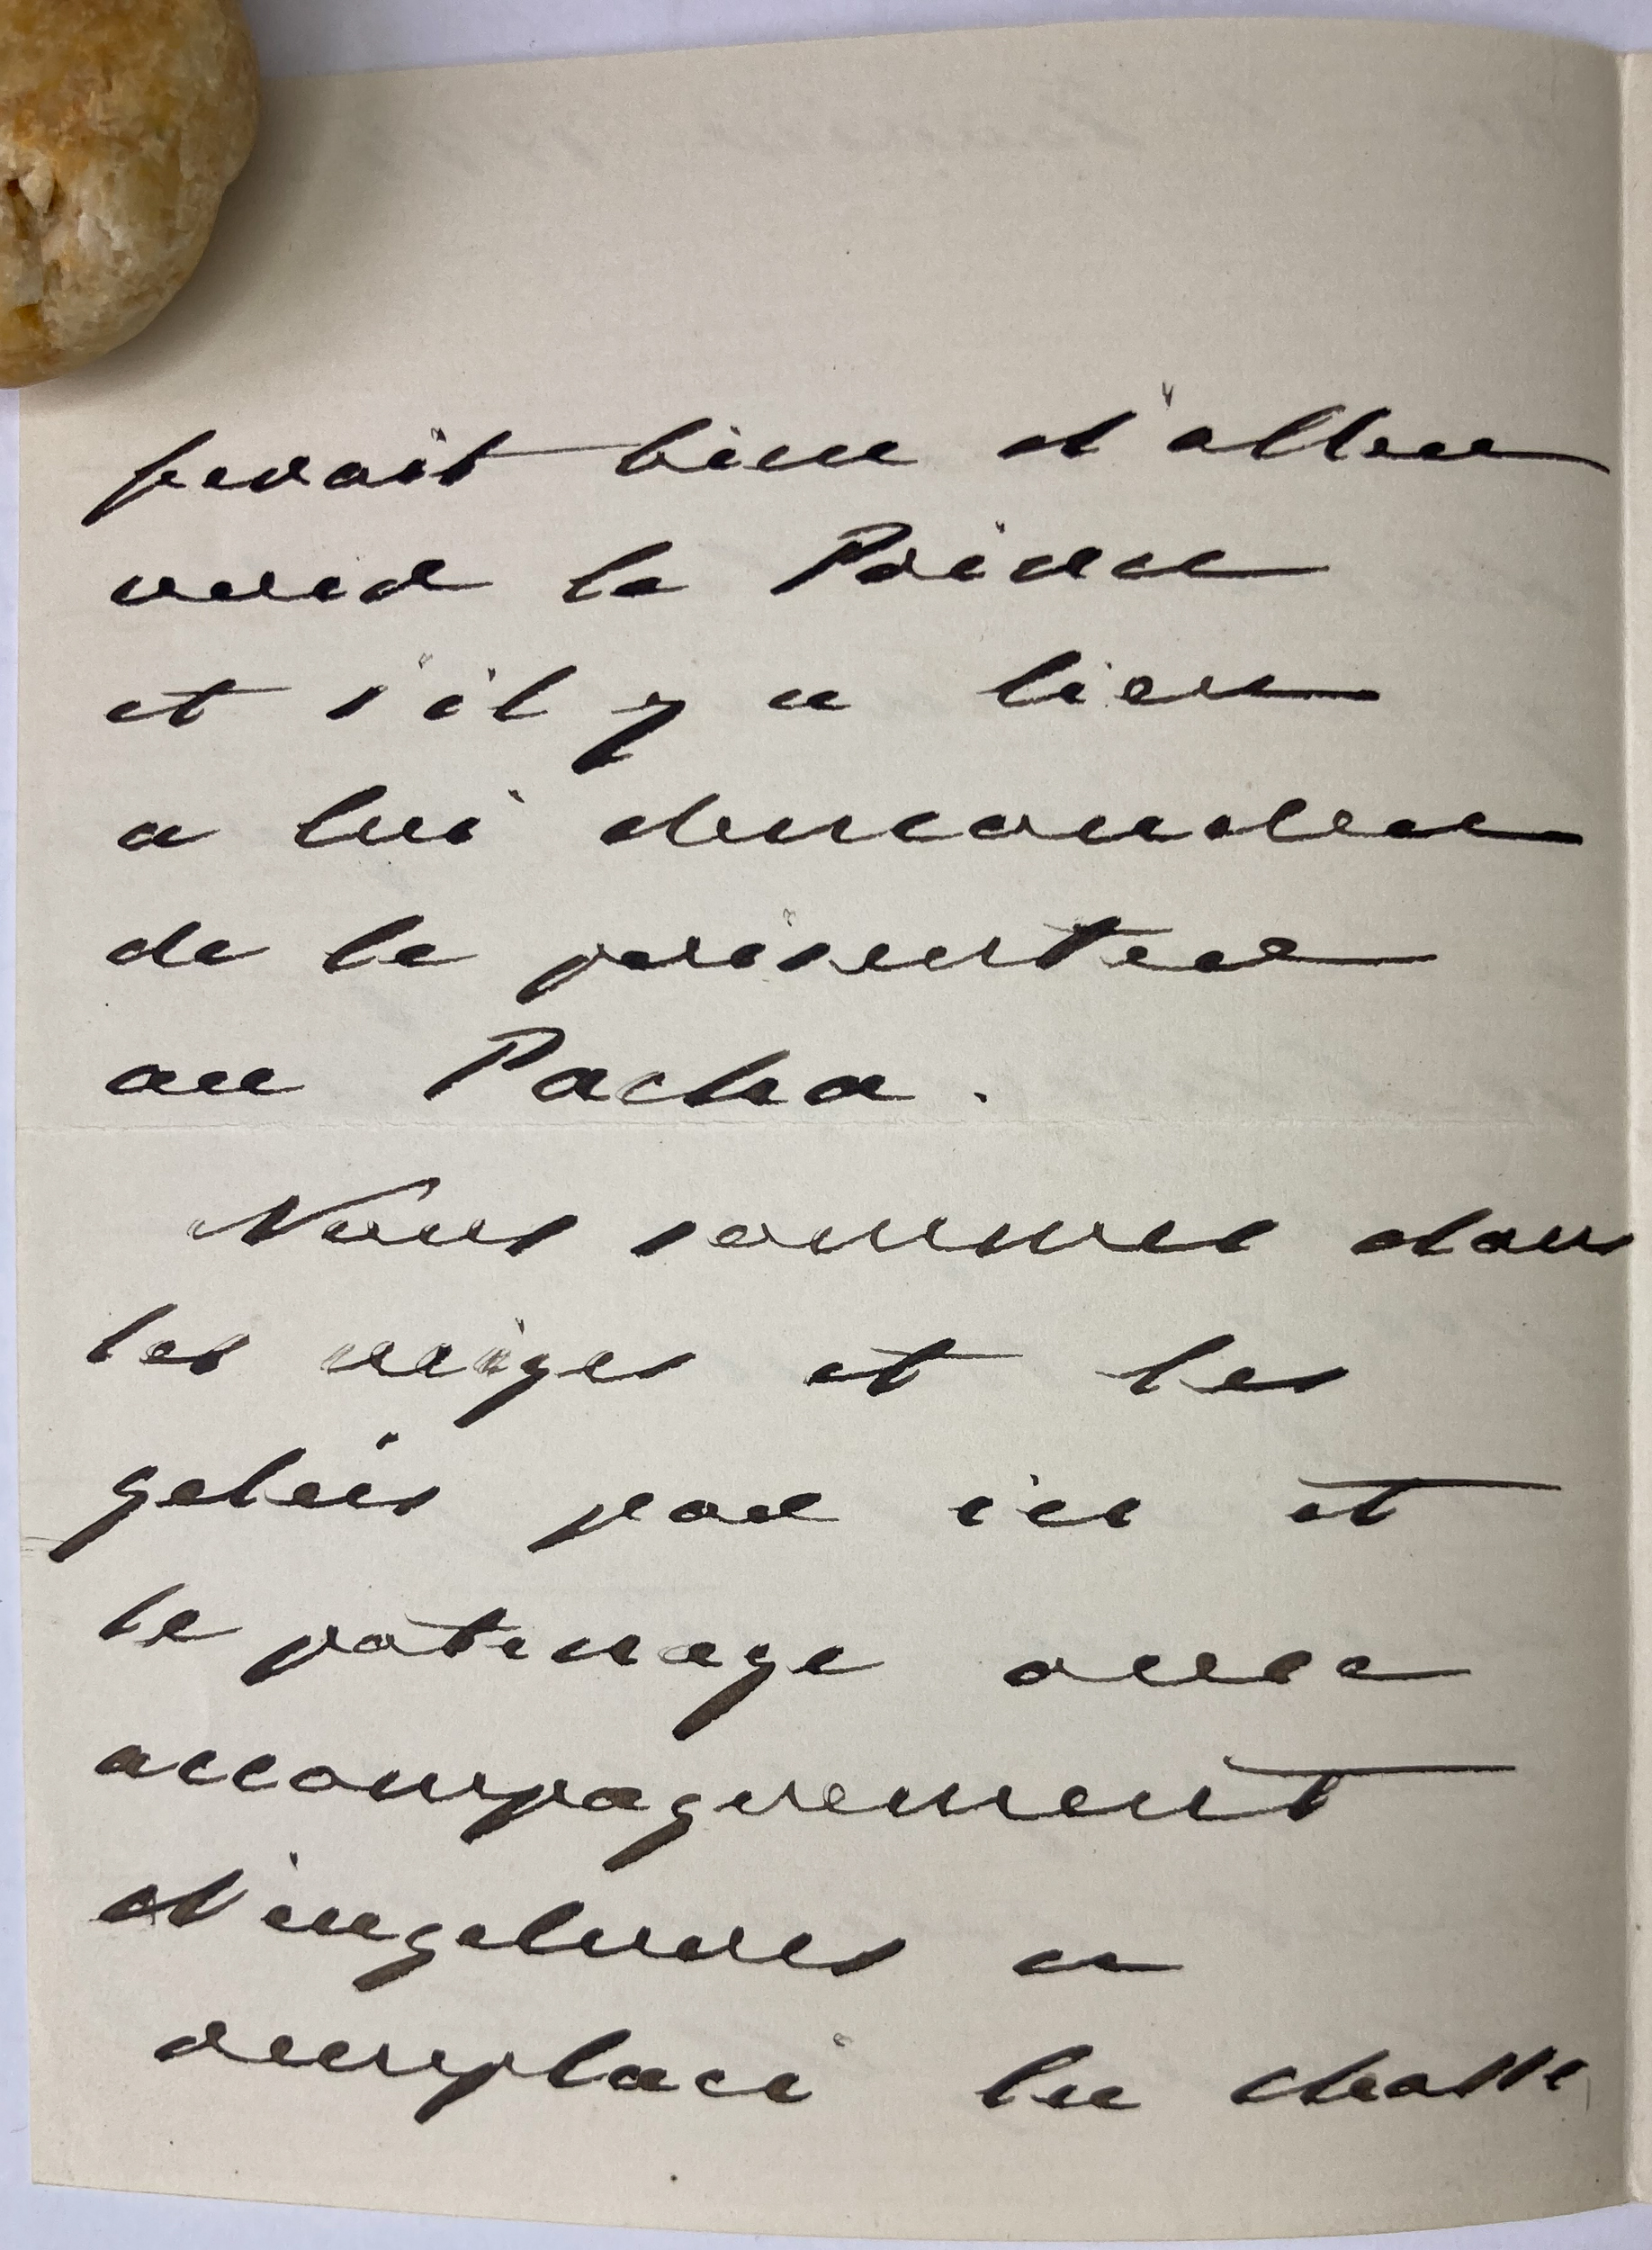 ferait bien d'aller
voir le Prince
et s'il y a lieu
a lui demander
de le présenter
au Pacha.
Nous sommes dans
les neiges et les
gelées par ici et
le patinage avec
accompagnement
d'engelures a
remplacé la chasse